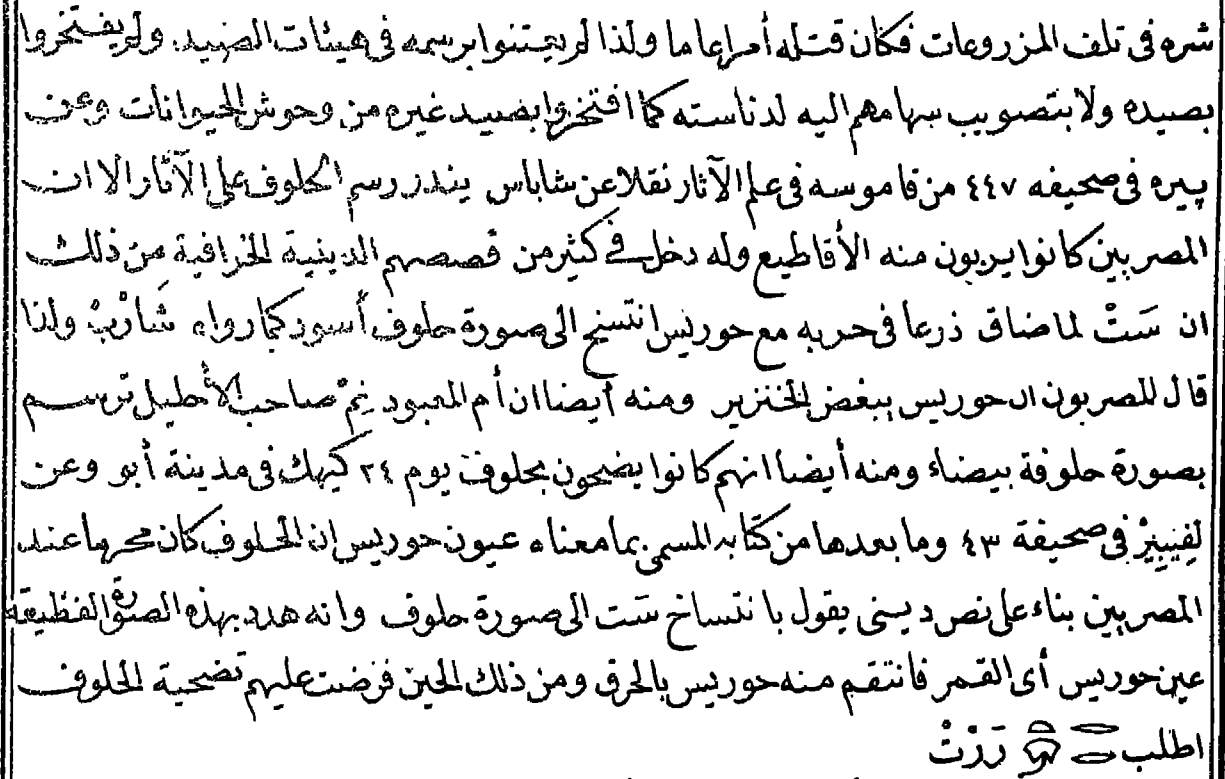 شره فى تلف المزروعات فكان قتله أمرا عاما ولذا لم يعتنوا برسمه فى هيئات الصيد ولم يفتخروا
بصيده ولا بتصويب سهامهم اليه لدناسته كما افتخروا بصيد غيره من وحوش الحيوانات وعن
پيره فى صحيفه ٤٤٧ من قاموسه فى علم الآثار نقلا عن شاباس يندر رسم الحلوف على الآثار الا ان
المصريين كانوا يربون منه الأقاطيع وله دخل فى كثير من قصصهم الدينية الخرافية من ذلك
ان سَتْ لما ضاق ذرعا فى حربه مع حوريس انتسخ الى صورة حلوف أسود كما رواه شَارْبْ ولذا
قال المصريون ان حوريس يبغض الخنزير ومنه أيضا ان أم المعبود خِمْ صاحب الأحليل ترسم
بصورة حلوفة بيضاء ومنه أيضا انهم كانوا يضحون بحلوف يوم ٢٤ كيهك فى مدينة أبو وعن
لِفِيبِيرْ فى صحيفة ٤٣ وما بعدها من كتابه المسمى بما معناه عيون حوريس ان الحلوف كان محرما عند
المصريين بناء على نص دينى يقول بانتساخ ست الى صورة حلوف وانه هدد بهذه الصورة الفظيعة
عين حوريس أى القمر فانتقم منه حوريس بالحرق ومن ذلك الحين فرضت عليهم تضحية الحلوف
اطلب رَرْتْ